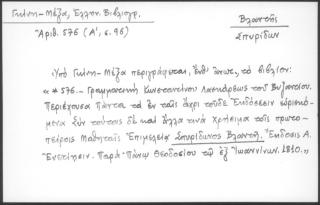 Γκίνη - Μέξα, Ἑλλην. Βιβλιογρ.
Ἀριθ. 576 (Α', σ. 96)
Βλαντῆς
Σπυρίδων
Ὑπὸ Γκίνη - Μέξα περιγράφεται, ἔνθ' ἄνωτ., τὸ βιβλίον:
«*576.- Γραμματικὴ Κωνσταντίνου Λασκάρεως τοῦ Βυζαντίου.
Περιέχουσα Πάντα τὰ ἐν ταῖς ἄχρι τοῦδε Ἐκδόσεσιν εὑρισκό-
μενα Σὺν τούτοις δὲ καὶ ἄλλα τινὰ χρήσιμα τοῖς πρωτο-
πείροις Μαθηταῖς Ἐπιμελείᾳ Σπυρίδωνος Βλαντῆ. Ἔκδοσις Α.
Ἐνετίησιν. Παρὰ Πάνῳ Θεοδοσίου τῷ ἐξ Ἰωαννίνων. 1810.»